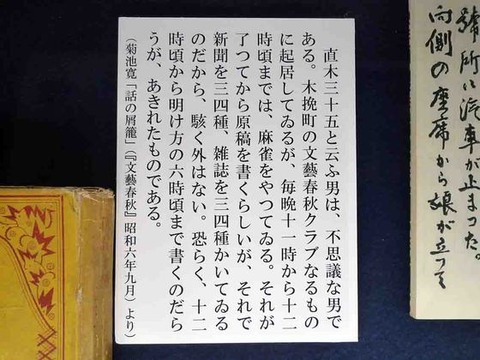 號所に汽車が止まつた。
向側の座席から娘が立つて
直木三十五と云ふ男は、不思議な男で
ある。木挽町の文藝春秋クラブなるもの
に起居してゐるが、毎晩十一時から十二
時頃までは、麻雀をやつてゐる。それが
了つてから原稿を書くらしいが、それで
新聞を三四種、雑誌を三四種かいてゐる
のだから、駭く外はない。恐らく、十二
時頃から明け方の六時頃まで書くのだら
うが、あきれたものである。
（菊池寛「話の屑籠」（『文藝春秋』昭和六年九月）より）